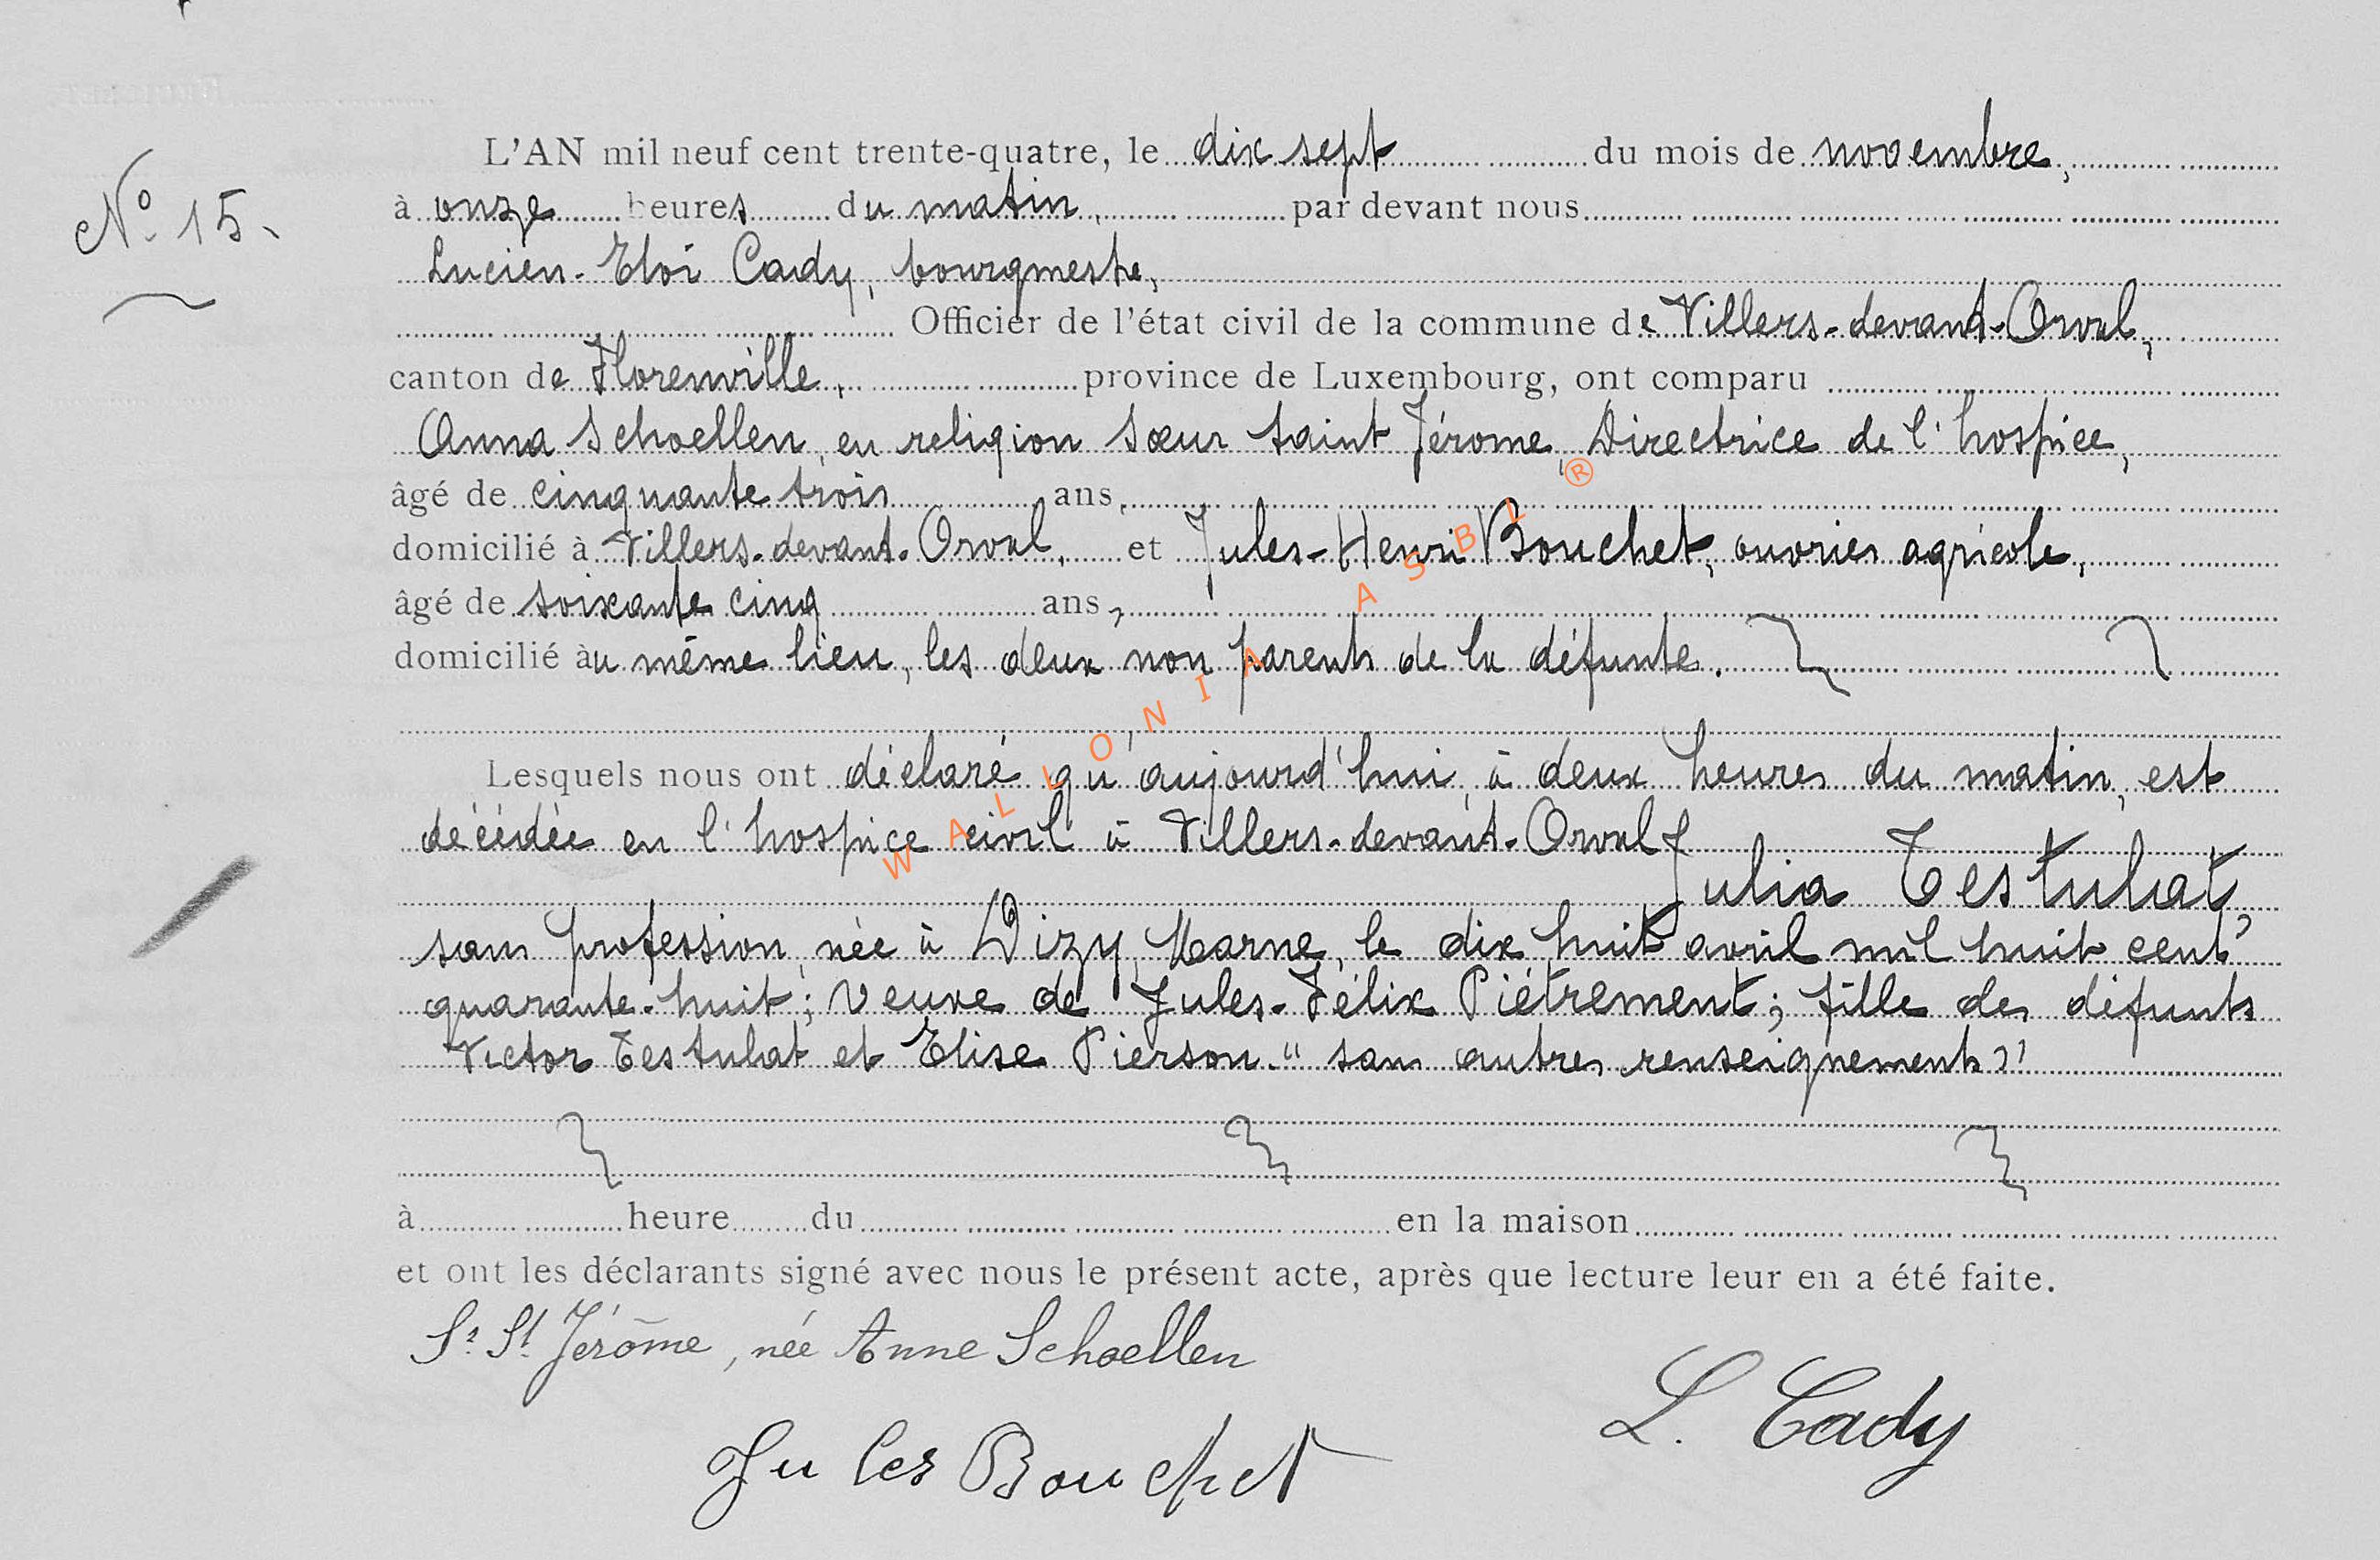 L'AN mil neuf cent trente-quatre, le dix sept du mois de novembre,
N° 15.
à onze heures du matin, par devant nous
Lucien-Eloi Cady, bourgmestre,
Officier de l'état civil de la commune de Villers-devant-Orval,
canton de Florenville, province de Luxembourg, ont comparu
Anna Schoellen, en religion Sœur Saint Jérome, Directrice de l'hospice,
âgé de cinquante trois ans,
domicilié à Villers-devant-Orval, et Jules-Henri Bouchet, ouvrier agricole,
âgé de soixante cinq ans,
domicilié àu même lieu, les deux non parents de la défunte.
Lesquels nous ont déclaré qu'aujourd'hui, à deux heures du matin, est
décédée en l'hospice civil à Villers-devant-Orval
Julia Testulat,
sans profession, née à Dizy, Marne, le dix huit avril mil huit cent
quarante-huit; veuve de Jules-Félix Piétrement; fille des défunts
Victor Testulat et Elise Pierson. "sans autres renseignements"
à heure du en la maison
et ont les déclarants signé avec nous le présent acte, après que lecture leur en a été faite.
Sr. St. Jérôme, née Anne Schoellen
L. Cady
Jules Bouchet
WALLONIA ASBL ®